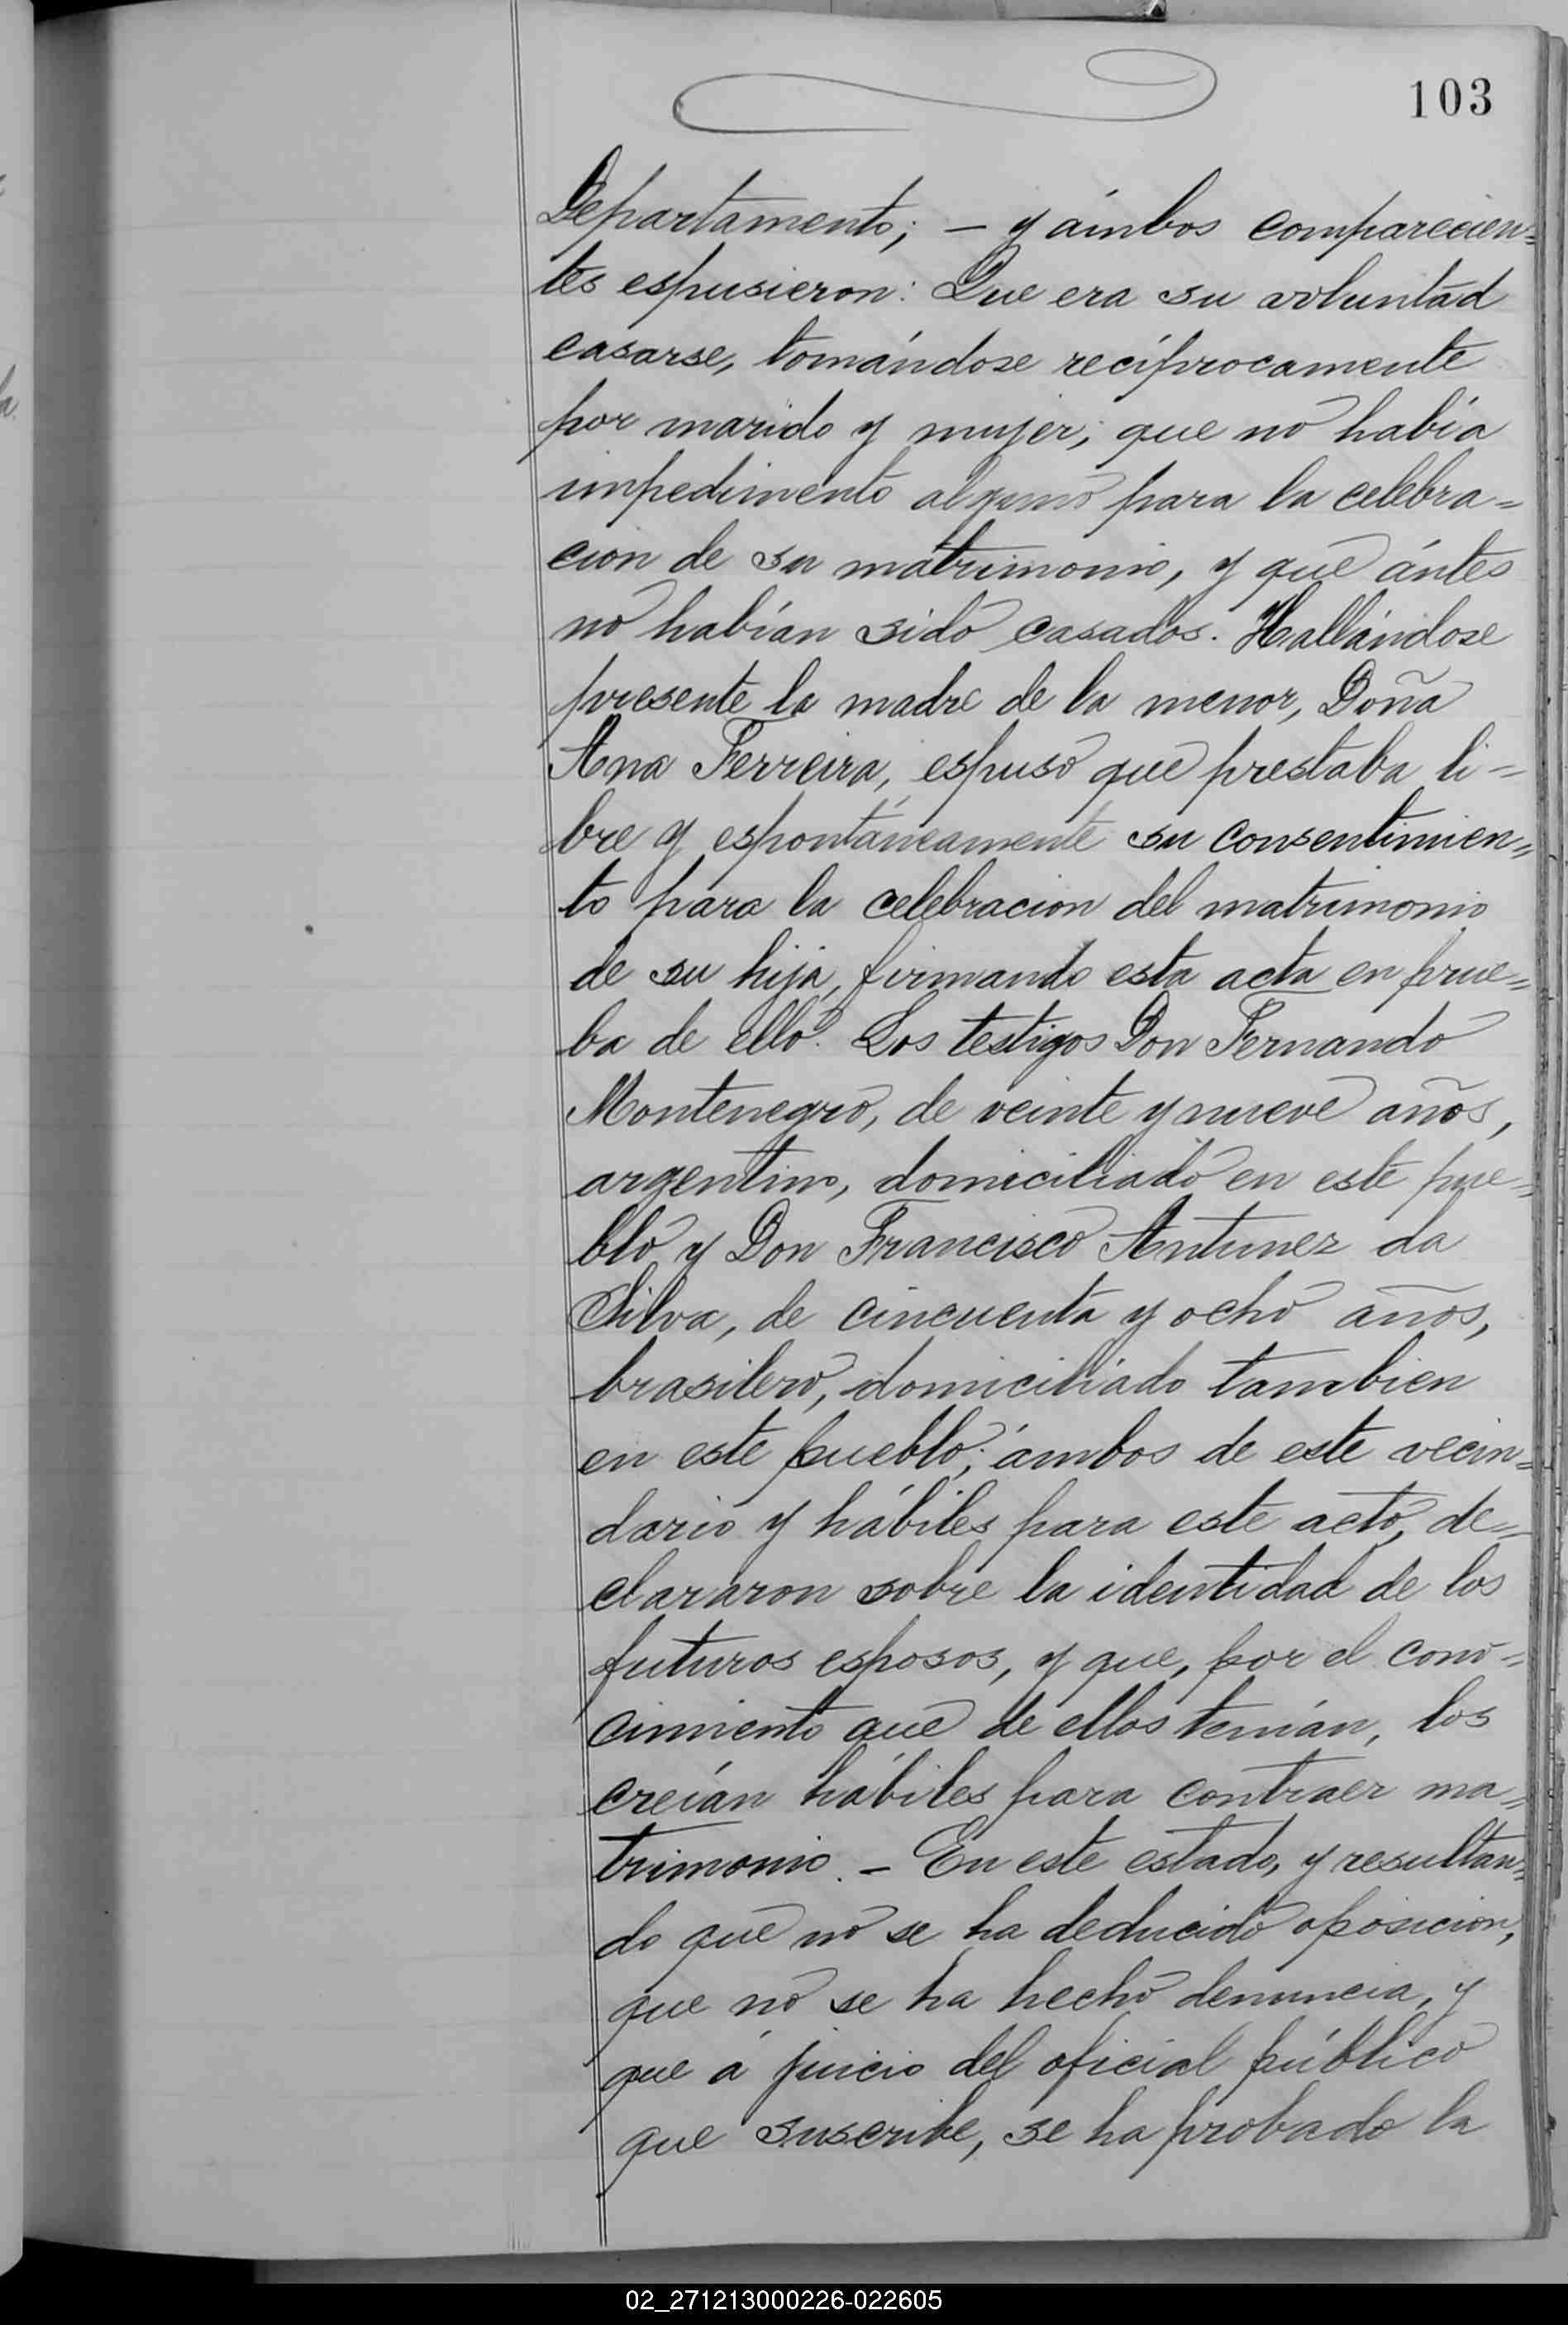 103
Departamento; – y ámbos comparecien=
tes espusieron: Que era su voluntad
casarse, tomándose recíprocamente
por marido y mujer; que no había
impedimento alguno para la celebra=
cion de su matrimonio, y que ántes
no habían sido casados. Hallándose
presente la madre de la menor, Doña
Ana Ferreira, espuso que prestaba li=
bre y espontáneamente su consentimien=
to para la celebracion del matrimonio
de su hija, firmando esta acta en prue=
ba de ello. Los testigos Don Fernando
Montenegro, de veinte y nueve años,
argentino, domiciliado en este pue=
blo y Don Francisco Antunez da
Silva, de cincuenta y ocho años,
brasilero, domiciliado tambien
en este pueblo; ámbos de este vecin=
dario y hábiles para este acto, de=
clararon sobre la identidad de los
futuros esposos, y que, por el cono=
cimiento que de ellos tenían, los
creían hábiles para contraer ma=
trimonio. – En este estado, y resultan=
do que no se ha deducido oposicion,
que no se ha hecho denuncia, y
que á juicio del oficial público
que suscribe, se ha probado la
02_271213000226-022605